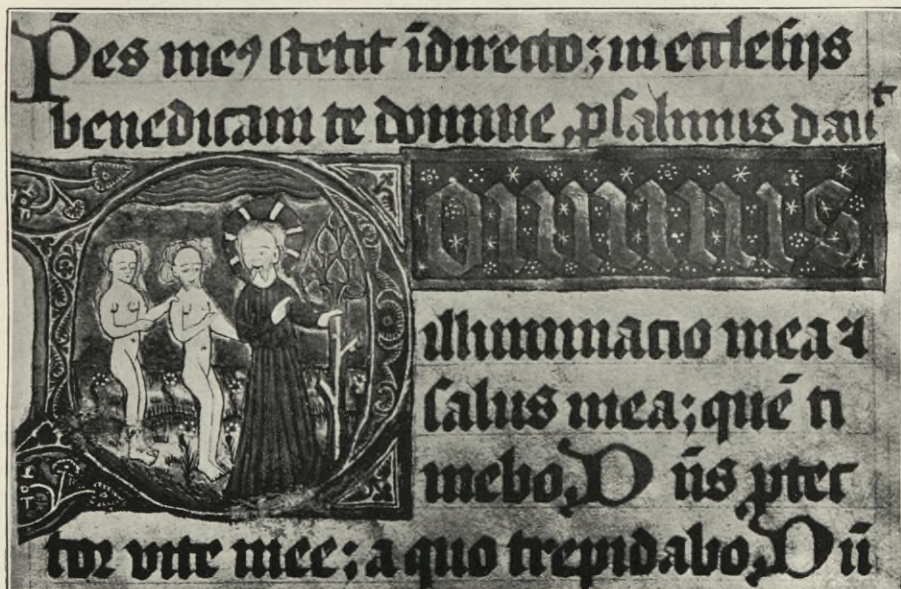 Pes me⁹ stetit ī directo; in ecclesijs
benedicam te domine, psalmus dauit
Dominus
illuminacio mea ⁊
salus mea; quē ti
mebo, Dn̄s ꝓtec
tor vite mee; a quo trepidabo, Dū